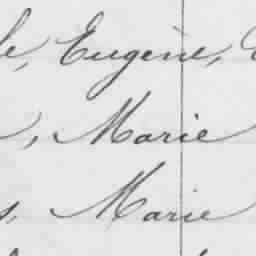 Eugène,
, Marie
Marie